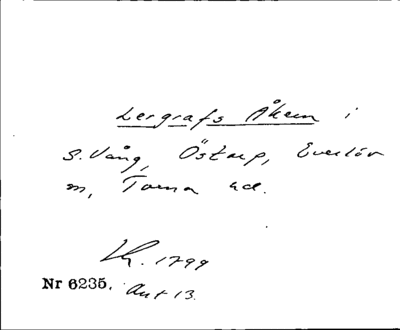 Lergrafs Åkern i
S. Vång, Östarp, Everlöv
m, Torna hd.
Lk. 1799
Nr 6235. Akt 13.